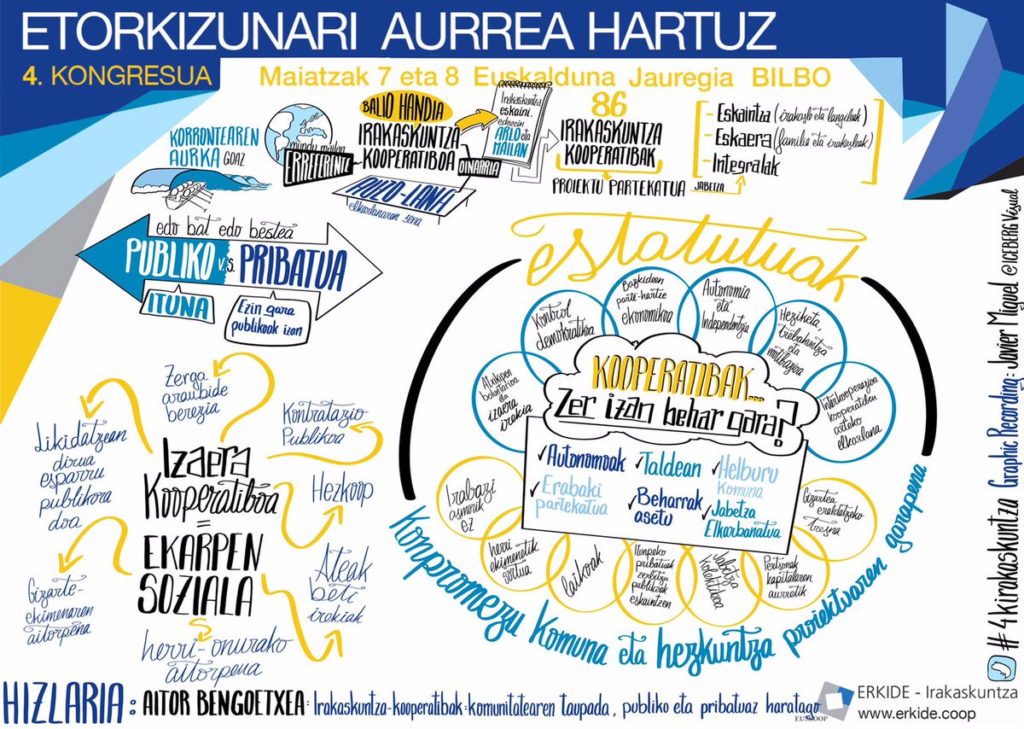 ETORKIZUNARI AURREA HARTUZ
4. KONGRESUA
Maiatzak 7 eta 8 Euskalduna Jauregia BILBO
KORRONTEAREN
AURKA GOAZ
mundu mailan
ERREFERENTE
BALIO HANDIA
IRAKASKUNTZA
KOOPERATIBOA
OINARRIA
AUZO-LANA
elkarlanaren sena
Irakaskuntza
eskaini
edozein
ARLO eta
MAILAN
86
IRAKASKUNTZA
KOOPERATIBAK
PROIEKTU PARTEKATUA
JABETZA
- Eskaintza (irakasle eta langileak)
- Eskaera (familia eta irakasleak)
- Integralak
edo bat edo bestea
PUBLIKO v.s. PRIBATUA
ITUNA
Ezin gara
publikoak izan
estatutuak
Kontrol
demokratikoa
Bazkideen
parte-hartze
ekonomikoa
Autonomia
eta
Independentzia
Heziketa
trebakuntza
eta
Interkooperazioa
kooperatiben
arteko
elkarlana
Atxikipen
boluntarioa
eta
izaera
irekia
KOOPERATIBAK...
Zer izan behar gara?
✓ Autonomoak
✓ Taldean
✓ Helburu
Komuna
✓ Erabaki
partekatua
✓ Beharrak
asetu
✓ Jabetza
Elkarbanatua
Irabazi
asmorik
ez
herri
ekimenetik
sortua
laikoak
Itunpeko
pribatuak
zerbitzu
publikoak
eskaintzen
Jabetza
kolektiboa
Pertsonak
kapitalaren
aurretik
Gizartea
eraldatzeko
tresna
Konpromezu komuna eta hezkuntza proiektuaren garapena
Zerga
araubide
berezia
Kontratazio
Publikoa
Likidatzean
dirua
esparru
publikora
doa
Izaera
Kooperatiboa
=
EKARPEN
SOZIALA
Hezkoop
Ateak
beti
irekiak
Gizarte-
ekimenaren
aitorpena
herri-onurako
aitorpena
HIZLARIA: AITOR BENGOETXEA: Irakaskuntza-kooperatibak: komunitatearen taupada, publiko eta pribatuaz haratago
EUSKOOP
ERKIDE - Irakaskuntza
www.erkide.coop
#4kirakaskuntza Graphic Recording: Javier Miguel @ICEBERG Visual